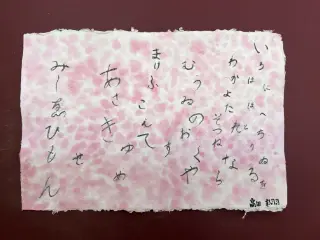 いろはにほへとちりぬるを
わかよたれ
そつねなら
むうゐのおくや
まけふこえて
あさきゆめ
みしゑひもせすん